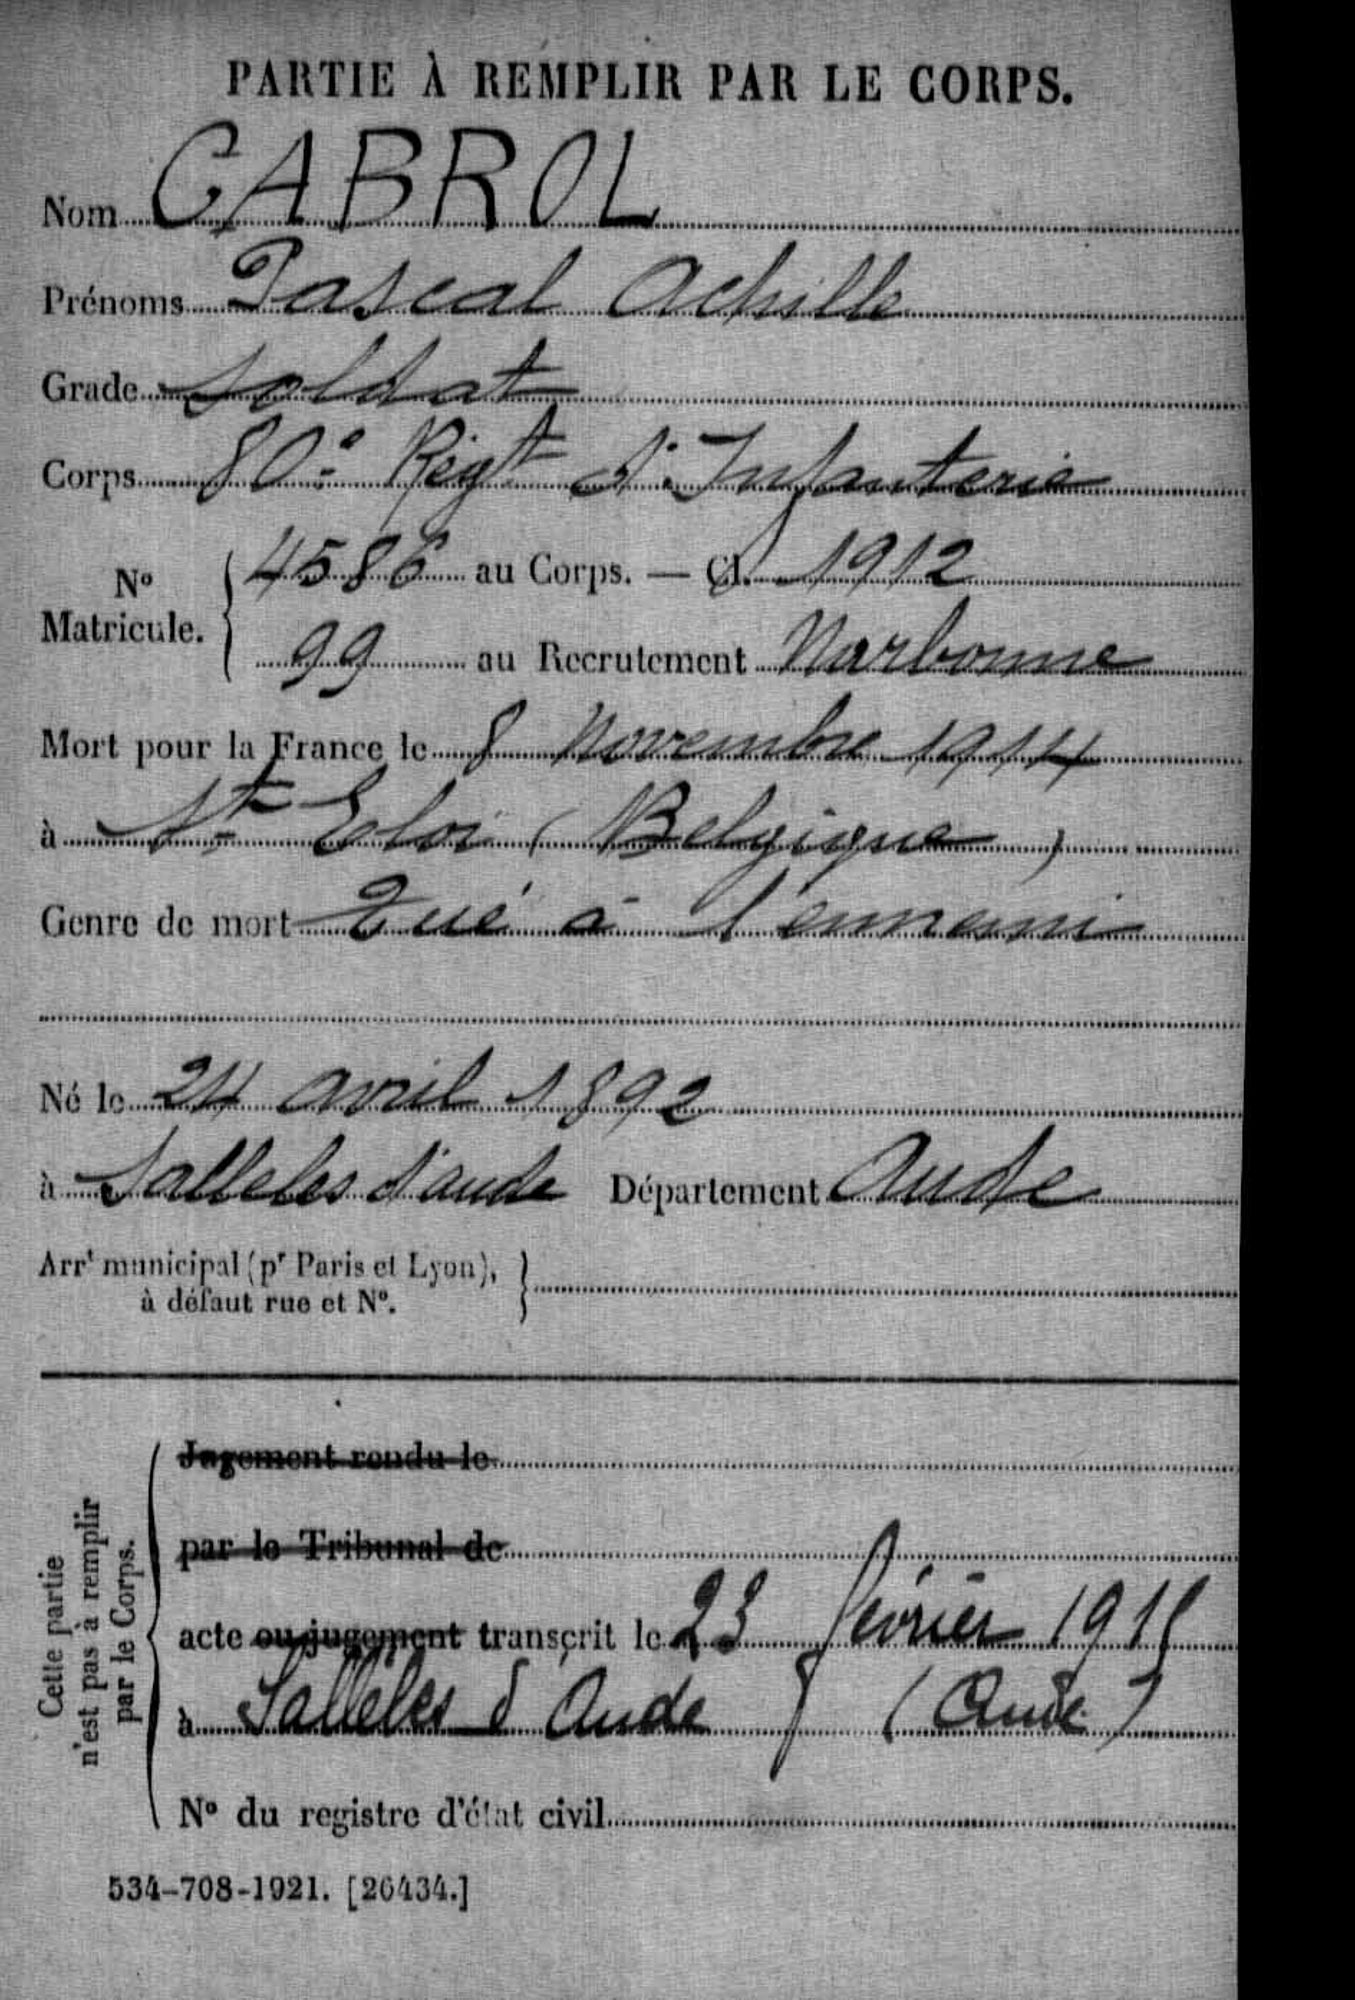 PARTIE À REMPLIR PAR LE CORPS.
Nom CABROL
Prénoms Pascal Achille
Grade Soldat
Corps 80e Régt d'Infanterie
No Matricule. { 4586 au Corps. — Cl. 1912
99 au Recrutement Narbonne
Mort pour la France le 8 Novembre 1914
à St Eloi (Belgique)
Genre de mort Tué à l'ennemi
Né le 24 avril 1892
à Salleles d'aude Département Aude
Arrt municipal (pr Paris et Lyon), }
à défaut rue et No.
Cette partie
n'est pas à remplir
par le Corps.
Jugement rendu le
par le Tribunal de
acte ou jugement transcrit le 23 février 1915
à Salleles d'Aude (Aude)
No du registre d'état civil
534-708-1921. [26434.]